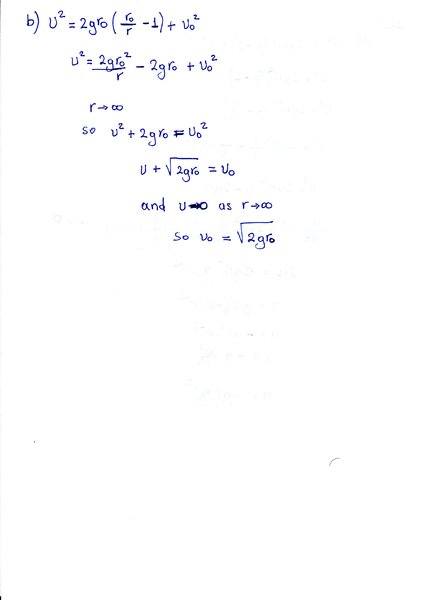 b) υ² = 2gr₀ (r₀/r − 1) + υ₀²
υ² = 2gr₀²/r − 2gr₀ + υ₀²
r → ∞
so υ² + 2gr₀ = υ₀²
υ + √(2gr₀) = υ₀
and υ → 0 as r → ∞
so υ₀ = √(2gr₀)